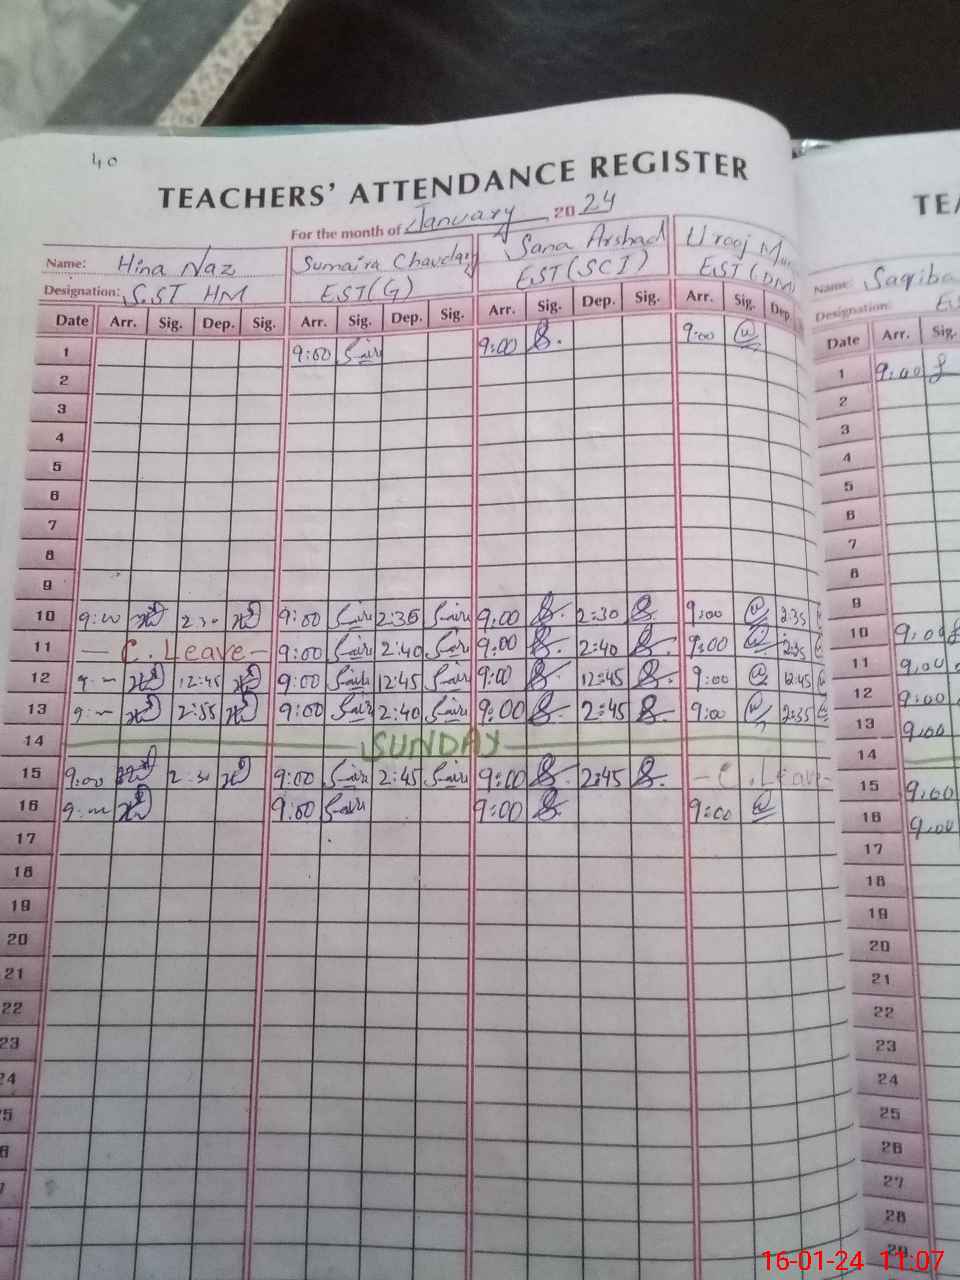 40
TEACHERS' ATTENDANCE REGISTER TEA
For the month of January 2024
Name: Hina Naz Sumaira Chaudary Sana Arshad Urooj Name: Saqiba
Designation: S.ST HM EST(G) EST(SCI) EST(DM) Designation:
Date Arr. Sig. Dep. Sig. Arr. Sig. Dep. Sig. Arr. Sig. Dep. Sig. Arr. Sig. Dep. Date Arr. Sig.
1 9:00 9:00 9:00 1 9:00
2 2
3 3
4 4
5 5
6 6
7 7
8 8
9 9
10 9:00 2:30 9:00 2:35 9:00 2:30 9:00 2:35 10 9:00
11 - C. Leave - 9:00 2:40 9:00 2:40 9:00 2:35 11 9:00
12 9:- 12:45 9:00 12:45 9:00 12:45 9:00 12:45 12 9:00
13 9:- 2:55 9:00 2:40 9:00 2:45 9:00 2:35 13 9:00
14 SUNDAY 14
15 9:00 2:30 9:00 2:45 9:00 2:45 - C. Leave - 15 9:00
16 9:- 9:00 9:00 9:00 16 9:00
17 17
18 18
19 19
20 20
21 21
22 22
23 23
24 24
25 25
26
27
28
29
16-01-24 11:07